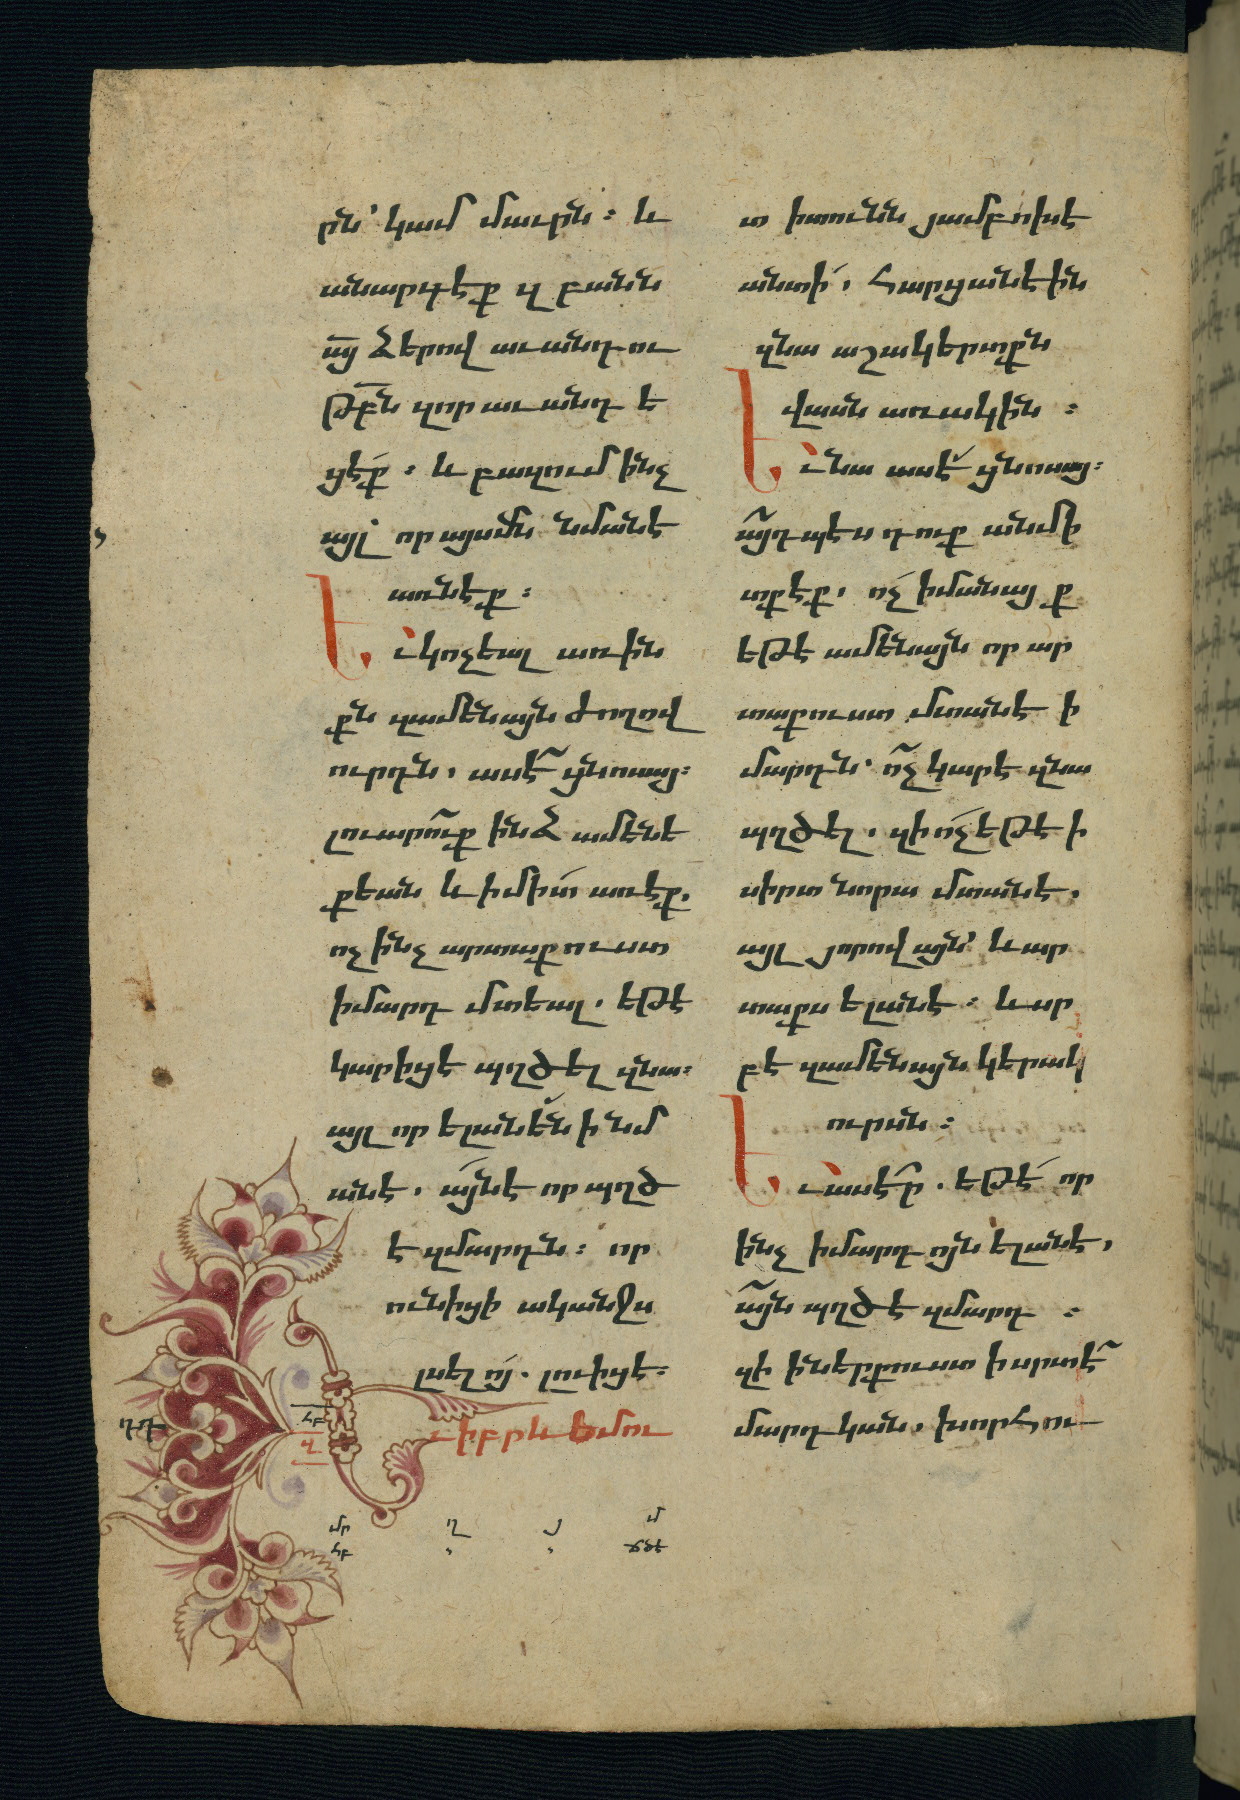 րն՝ կամ մաւրն։ և
անարգէք զբանն
ա՟յ ձերով աւանդու
թբ՟ն զոր աւանդե
ցէք. և բազում ինչ
այլ որ այսմ նմանէ
առնէք։
Եւ կոչեալ առ ին
քն զամենայն ժողով
ուրդն, ասէ՜ ցնոսայ։
լուարո՜ւք ինձ ամենե
քեան և ի միտ առէք.
ոչ ինչ արտաքուստ
ի մարդ մտեալ. եթէ
կարիցէ պղծել զնա։
այլ որ ելանէն ի նմ
անէ. այնէ որ պղծ
է զմարդն։ որ
ունիցի ականջս
լսել ո՛յ. լուիցե։
Եւ իբրև եմու
տ ի տունն յամբոխէ
անտի, հարցանէին
զնա աշակերտքն
վասն առակին։
Եւ նա ասէ ցնոսայ։
ա՜յդպէս դուք անմի
տքէք, ոչ իմանայք
եթէ ամենայն որ ար
տաքուստ մտանէ ի
մարդն. ո՜չ կարէ զնա
պղծել. զի ոչ եթէ ի
սիրտ նորա մտանէ,
այլ յորովայն՝ և ար
տաքս ելանէ։ և սր
բէ զամենայն կերակ
ուրսն։
Եւ ասէր. եթէ որ
ինչ ի մարդոյն ելանէ,
ա՜յն պղծէ զմարդ։
զի ի ներքուստ ի սրտէ՜
մարդկան, խորհու
ՀԲ
Վ
ՂԴ
մր ղ յ մ
ՀԲ